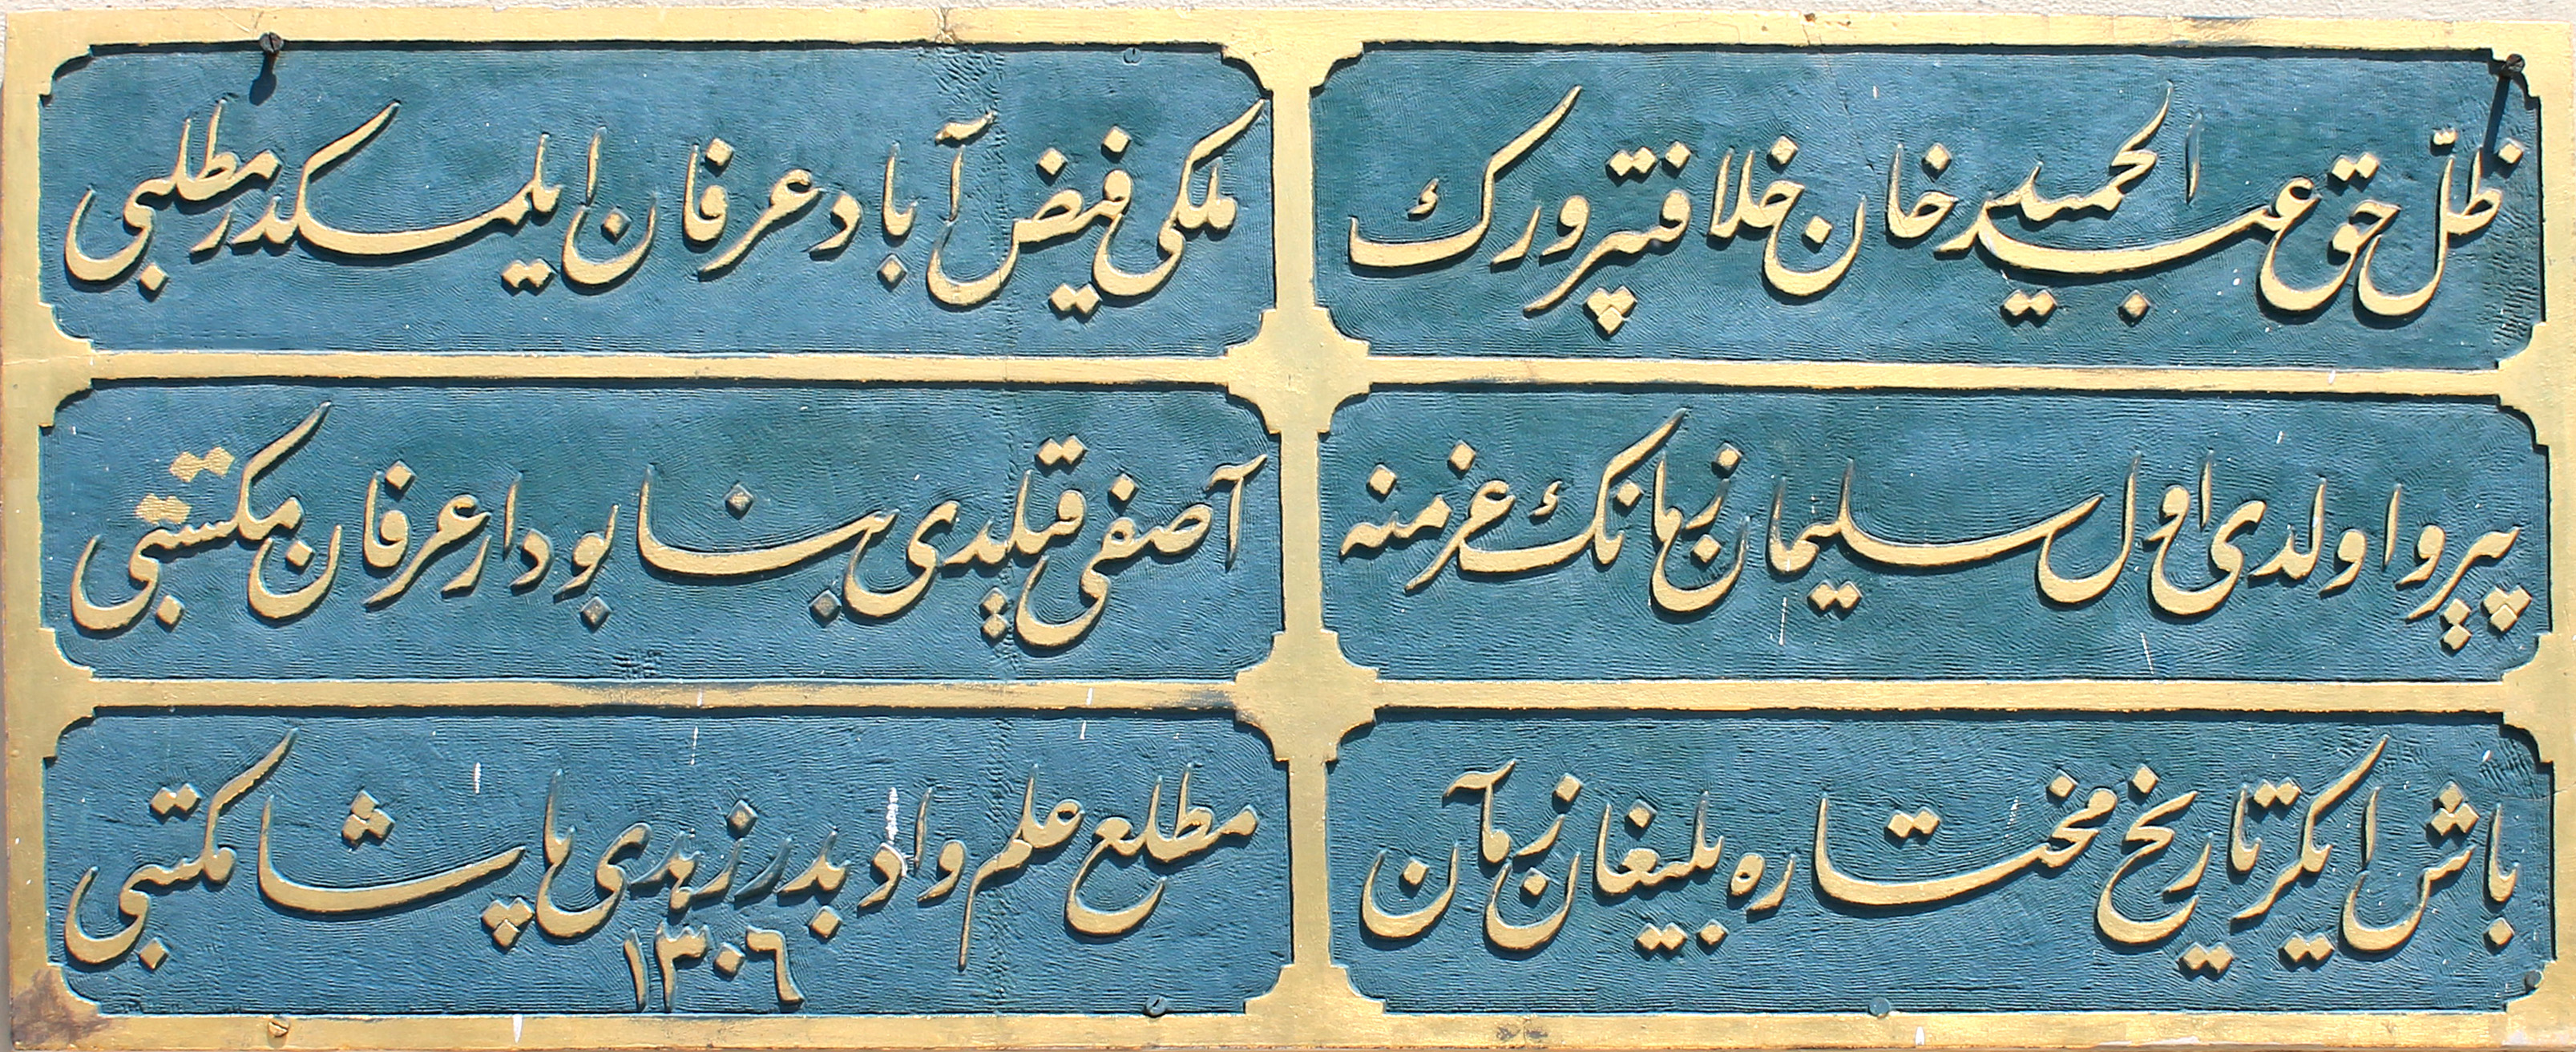 ظلّ حق عبد الحمید خان خلافتپرورك
ملکی فیض آباد عرفان ایلمکدر مطلبی
پیرو اولدی اول سلیمان زمانك عزمنه
آصفی قیلدی بنا بو دار عرفان مکتبی
باش ایکر تاریخ مختاره بلیغان زمان
مطلع علم و ادب در زهدی پاشا مکتبی
١٣٠٦